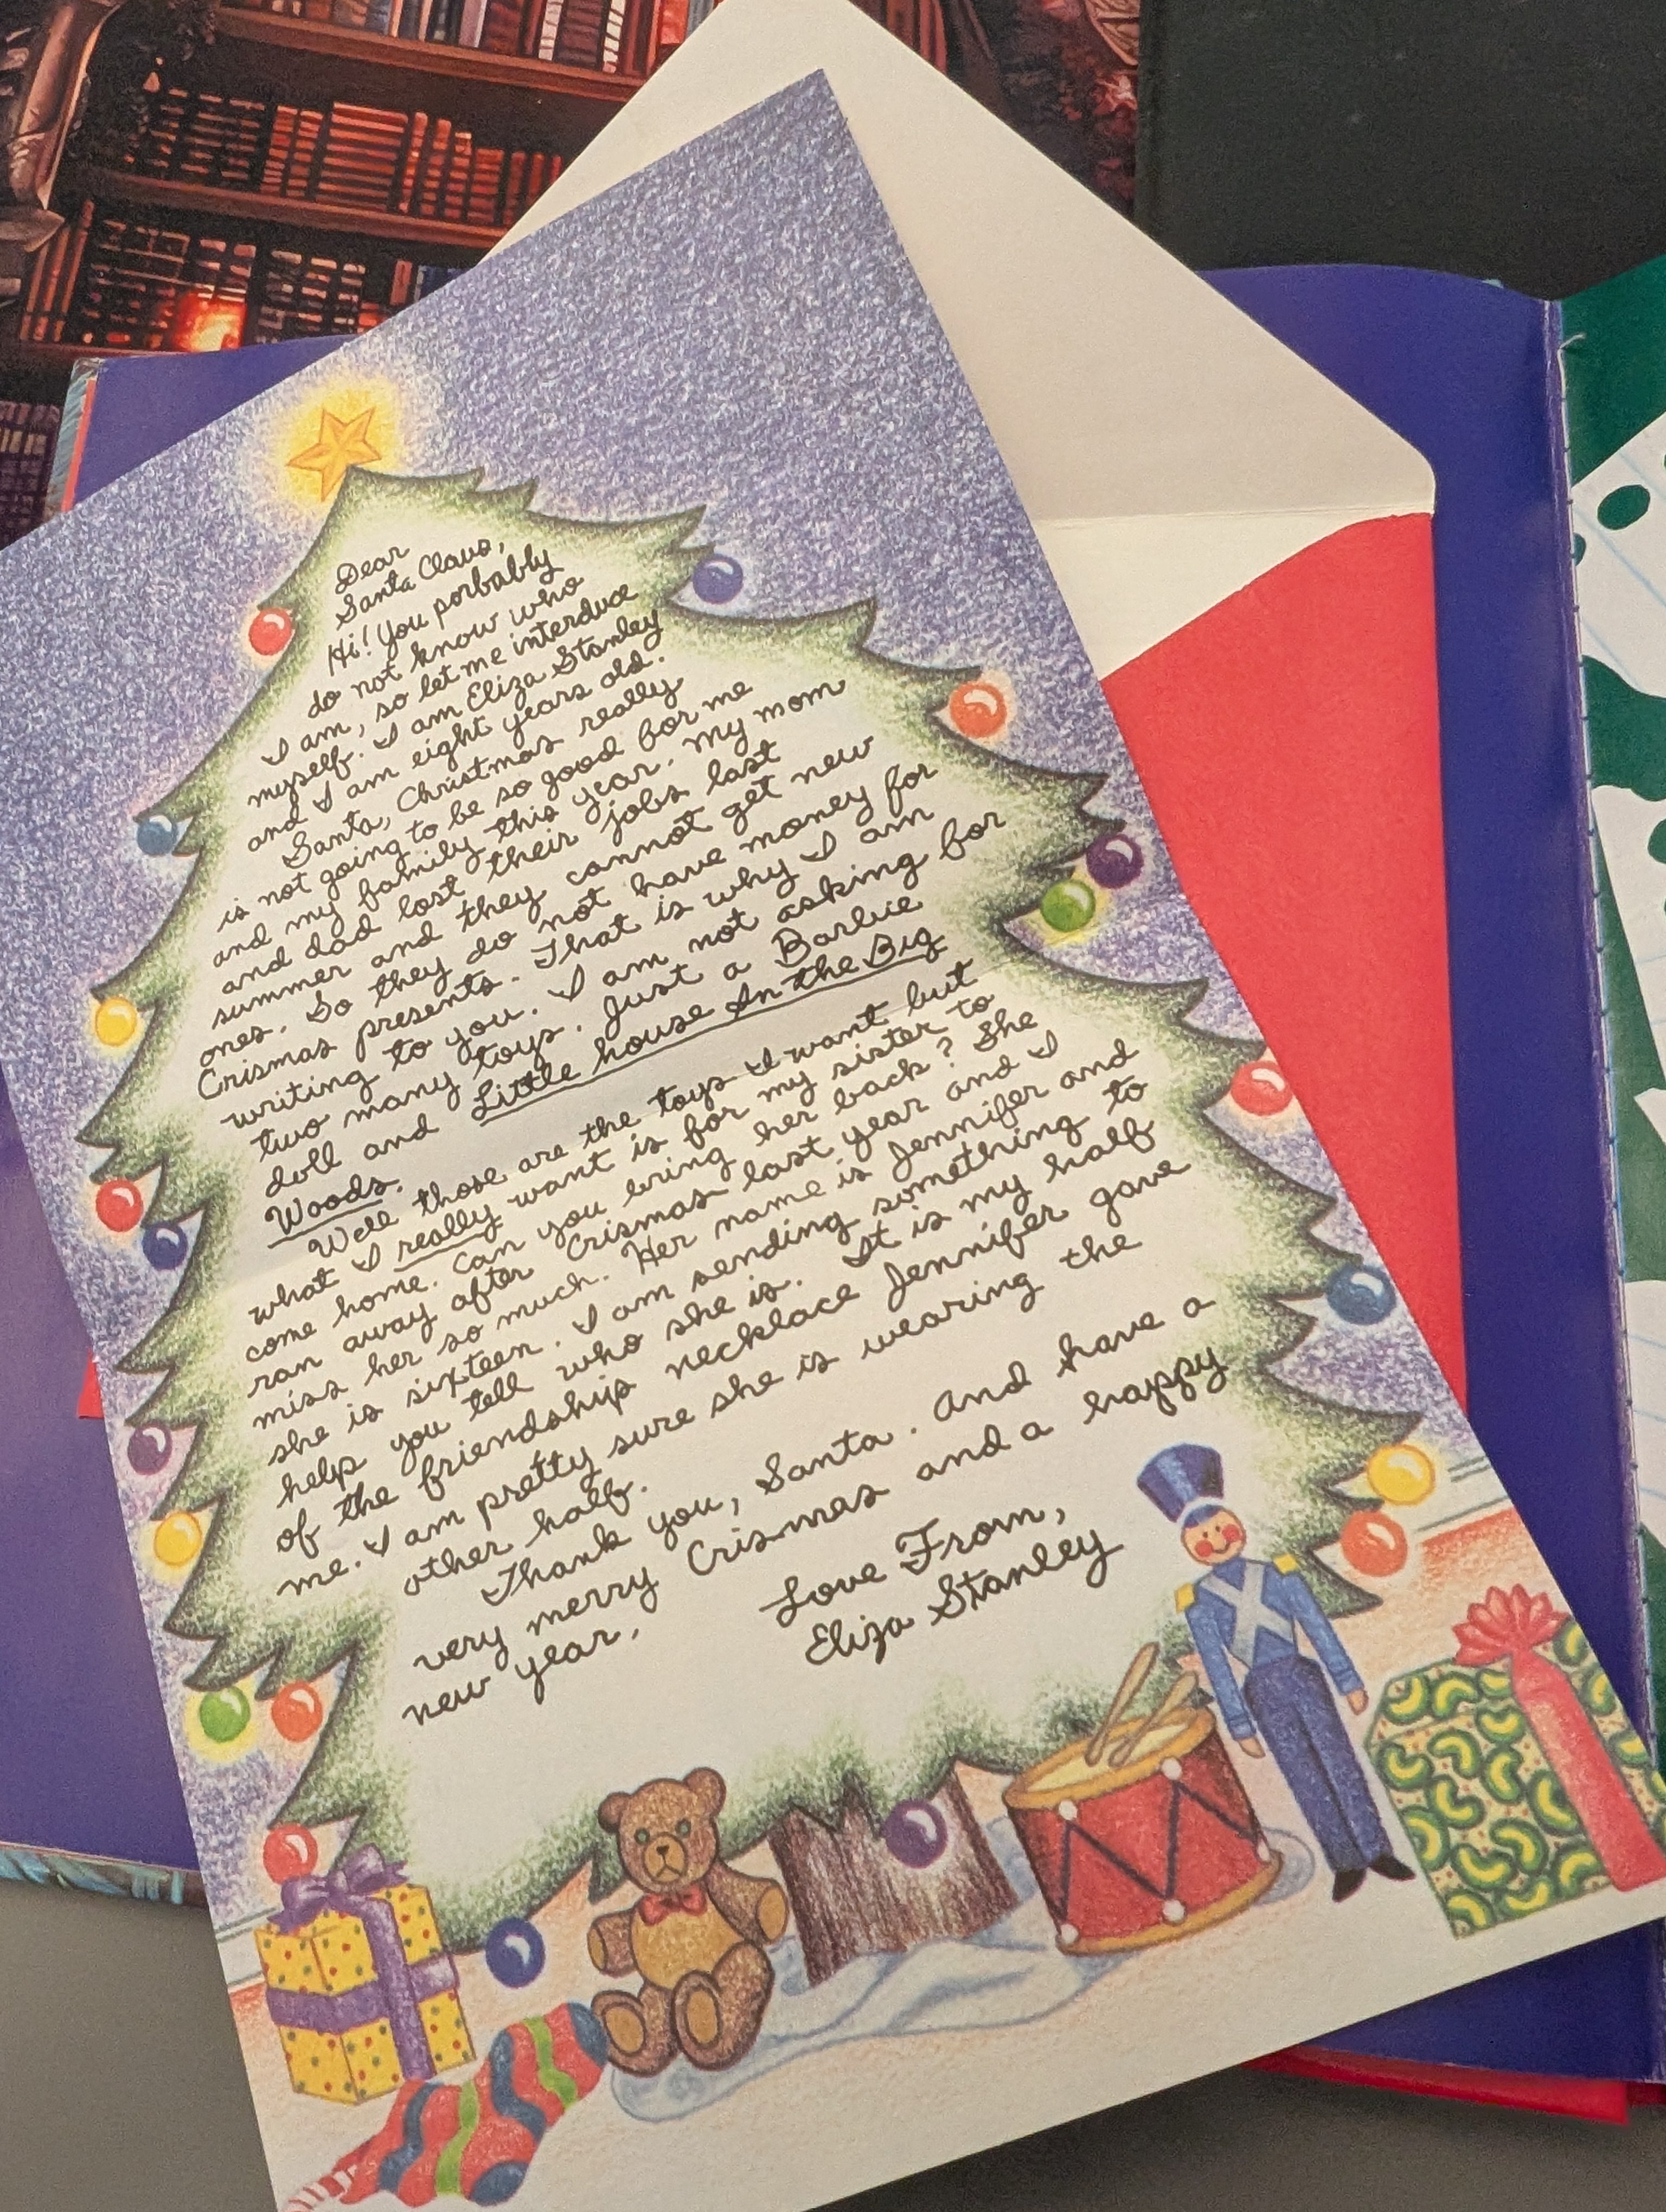 Dear
Santa Claus,
Hi! You porbably
do not know who
I am, so let me interduce
myself. I am Eliza Stanley
and I am eight years old.
Santa, Christmas really
is not going to be so good for me
and my family this year. My mom
and dad lost their jobs last
summer and they cannot get new
ones. So they do not have money for
Crismas presents. That is why I am
writing to you. I am not asking for
two many toys. Just a Barbie
doll and Little house In the Big
Woods.
Well those are the toys I want but
what I really want is for my sister to
come home. Can you bring her back? She
ran away after Crismas last year and I
miss her so much. Her name is Jennifer and
she is sixteen. I am sending something to
help you tell who she is. It is my half
of the friendship necklace Jennifer gave
me. I am pretty sure she is wearing the
other half.
Thank you, Santa. And have a
very merry Crismas and a happy
new year.
Love From,
Eliza Stanley